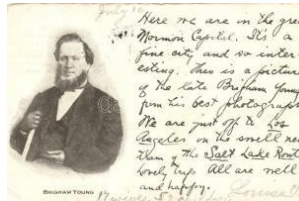 July 10
Here we are in the gre
Mormon Capitol. It's a
fine city and so inter
esting. This is a picture
of the late Brigham Young
from his best photograph
We are just off to Los
Angeles on the swell new
train of the Salt Lake Rout
Lovely trip. All are well
and happy.
Louise
BRIGHAM YOUNG
19 wives